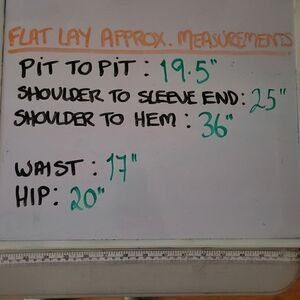 FLAT LAY APPROX. MEASUREMENTS
PIT TO PIT : 19.5"
SHOULDER TO SLEEVE END: 25"
SHOULDER TO HEM : 36"
WAIST : 17"
HIP: 20"